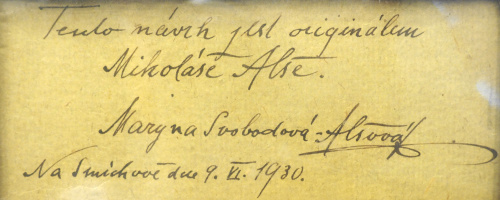 Tento návrh jest originálem
Mikoláše Alše.
Maryna Svobodová-Alšová
Na Smíchově dne 9. VI. 1930.